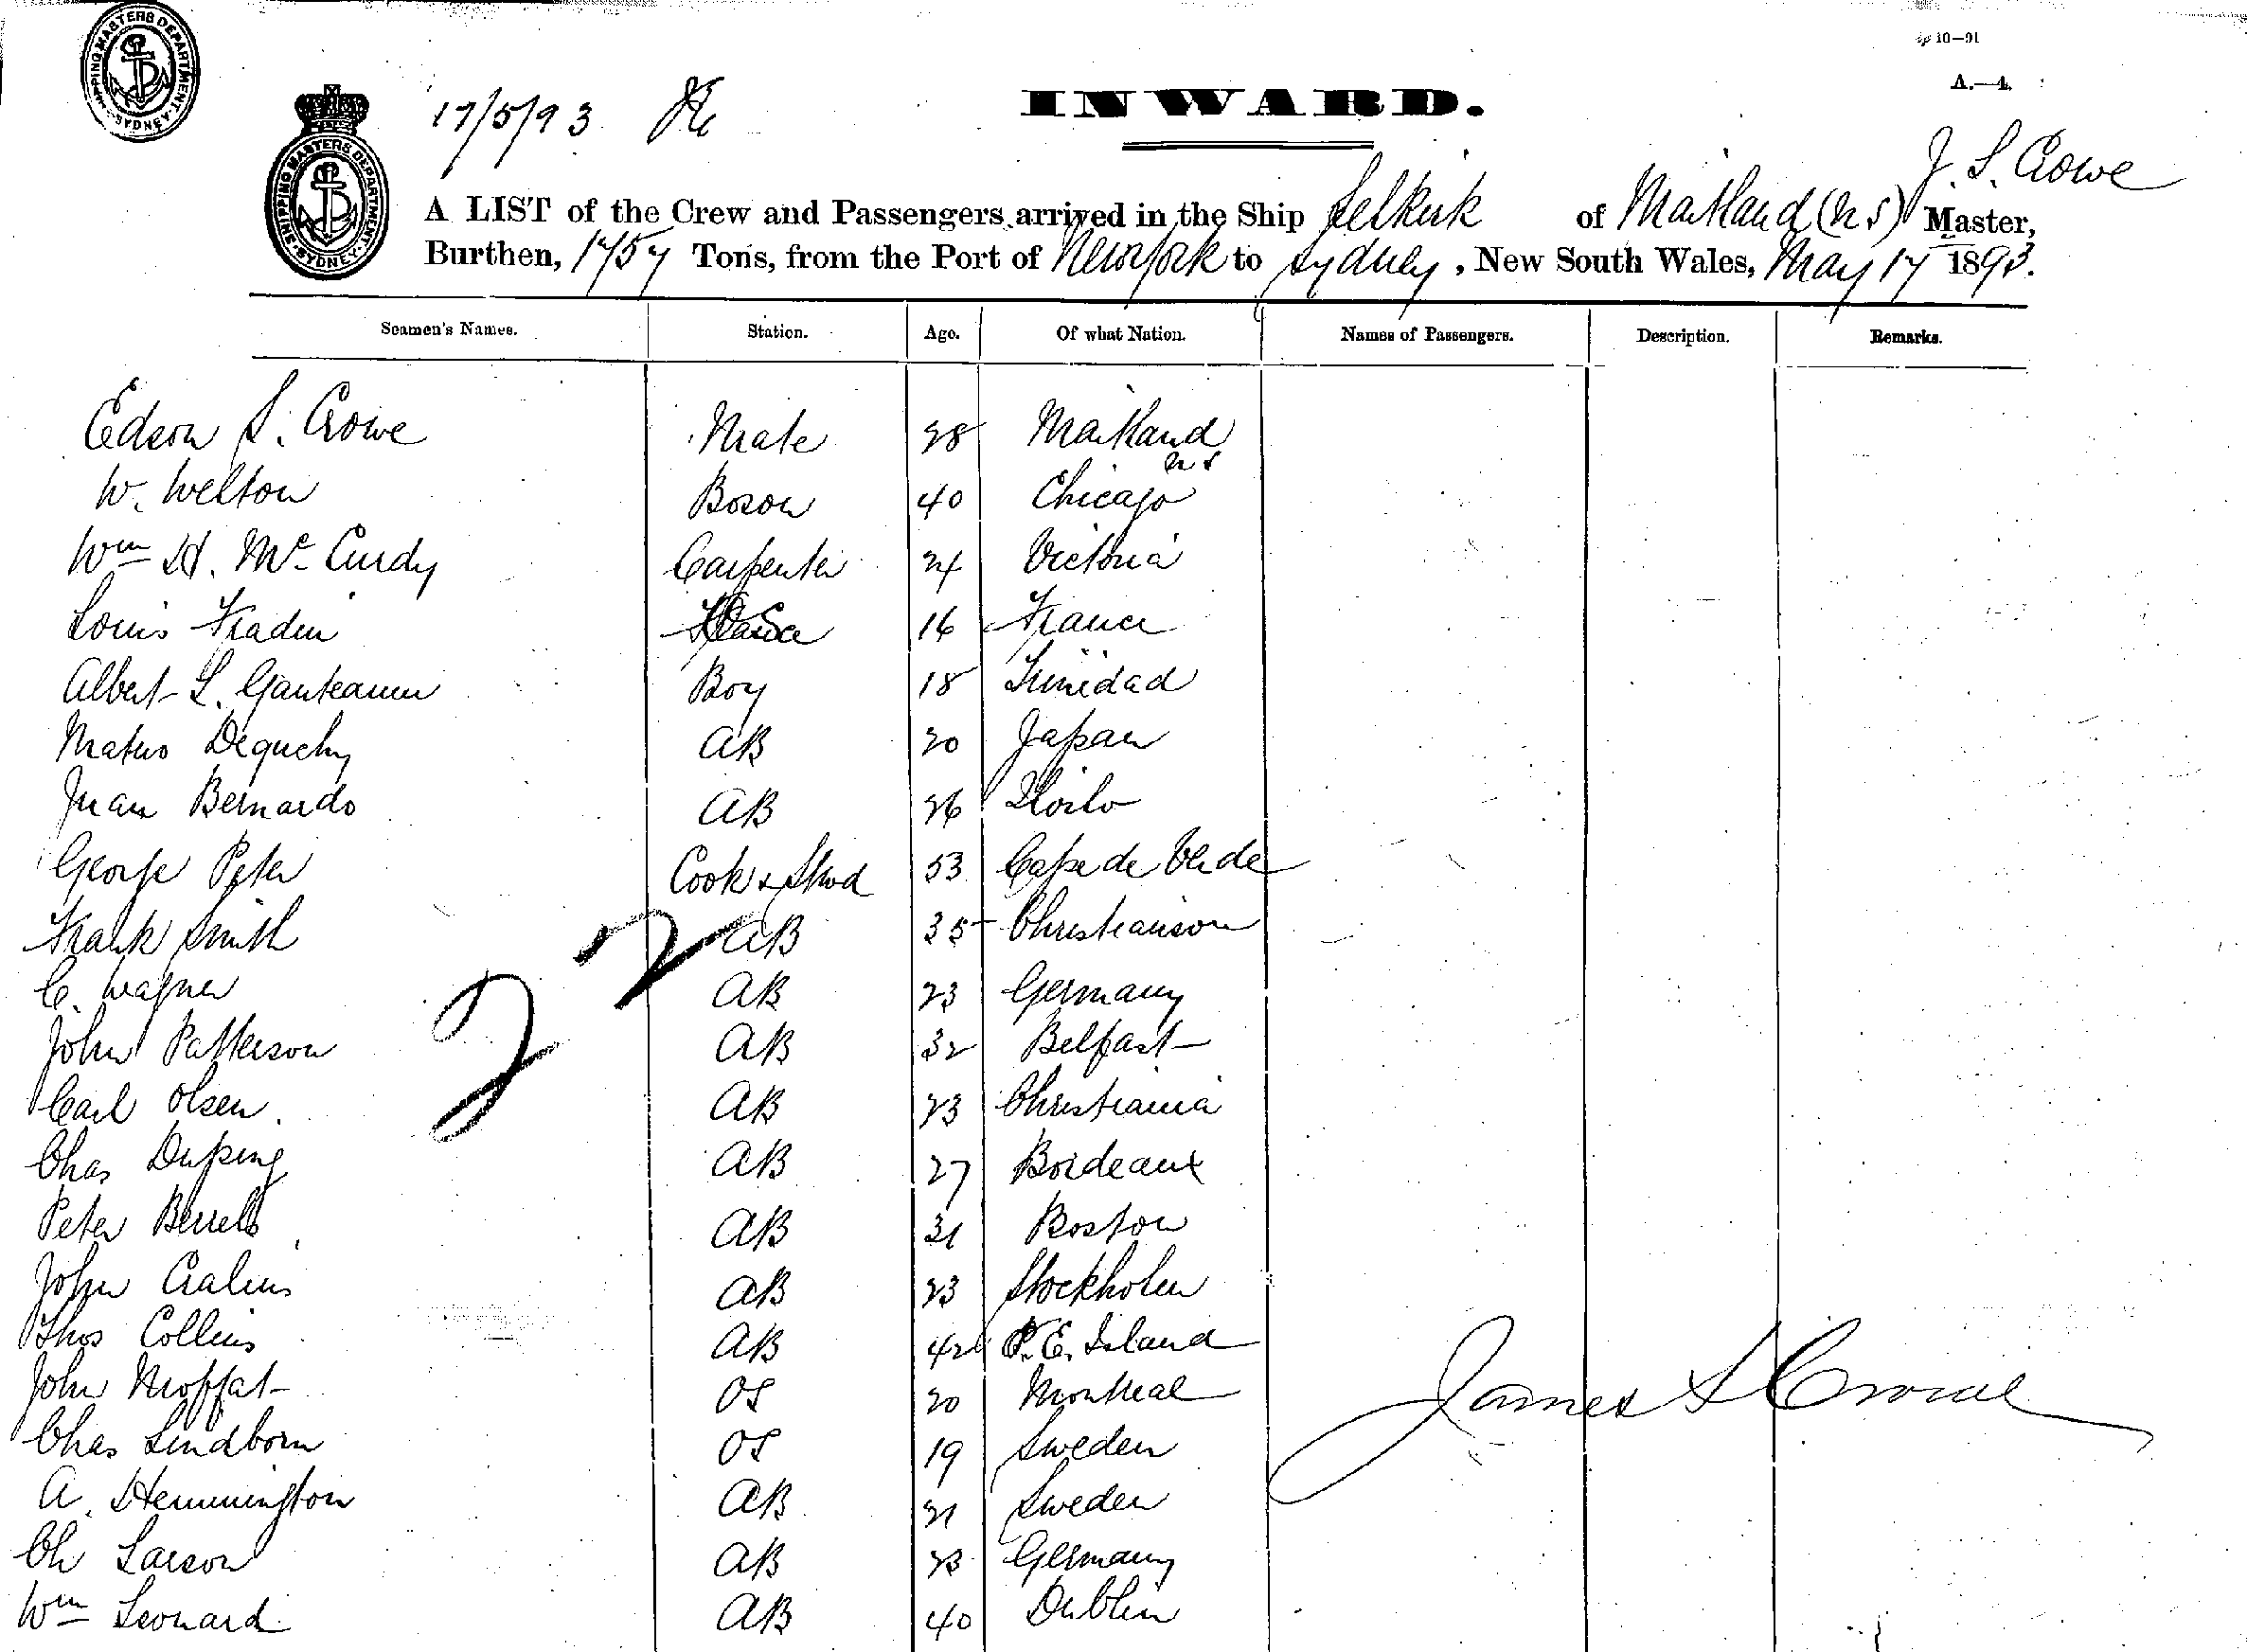 SHIPPING MASTERS DEPARTMENT. SYDNEY.
10—91
A.—4.
17/5/93
INWARD.
SHIPPING MASTERS DEPARTMENT. SYDNEY.
J. S. Crowe
A LIST of the Crew and Passengers arrived in the Ship Selkirk of Maitland (NS) Master,
Burthen, 1757 Tons, from the Port of New York to Sydney, New South Wales, May 17 1893.
Seamen's Names. Station. Age. Of what Nation. Names of Passengers. Description. Remarks.
Edson S. Crowe Mate 28 Maitland NS
W. Welton Boson 40 Chicago
Wm H. McCurdy Carpenter 24 Victoria
Louis Fradin 16 France
Albert L. Ganteaume Boy 18 Trinidad
Matuo Deguchy AB 20 Japan
Juan Bernardo AB 26 Iloilo
George Peter Cook & Stwd 53 Cape de Verde
Frank Smith AB 35 Christianson
C. Wagner AB 23 Germany
22
John Patterson AB 32 Belfast
Carl Olsen. AB 23 Christiania
Chas Duping AB 27 Bordeaux
Peter Berrell AB 31 Boston
John AB 23 Stockholm
Thos Collins AB 42 P. E. Island
John Moffat OS 20 Montreal
James S Crowe
Chas Lindborn OS 19 Sweden
A. Hemmington AB 21 Sweden
Ch Larson AB 23 Germany
Wm Leonard AB 40 Dublin